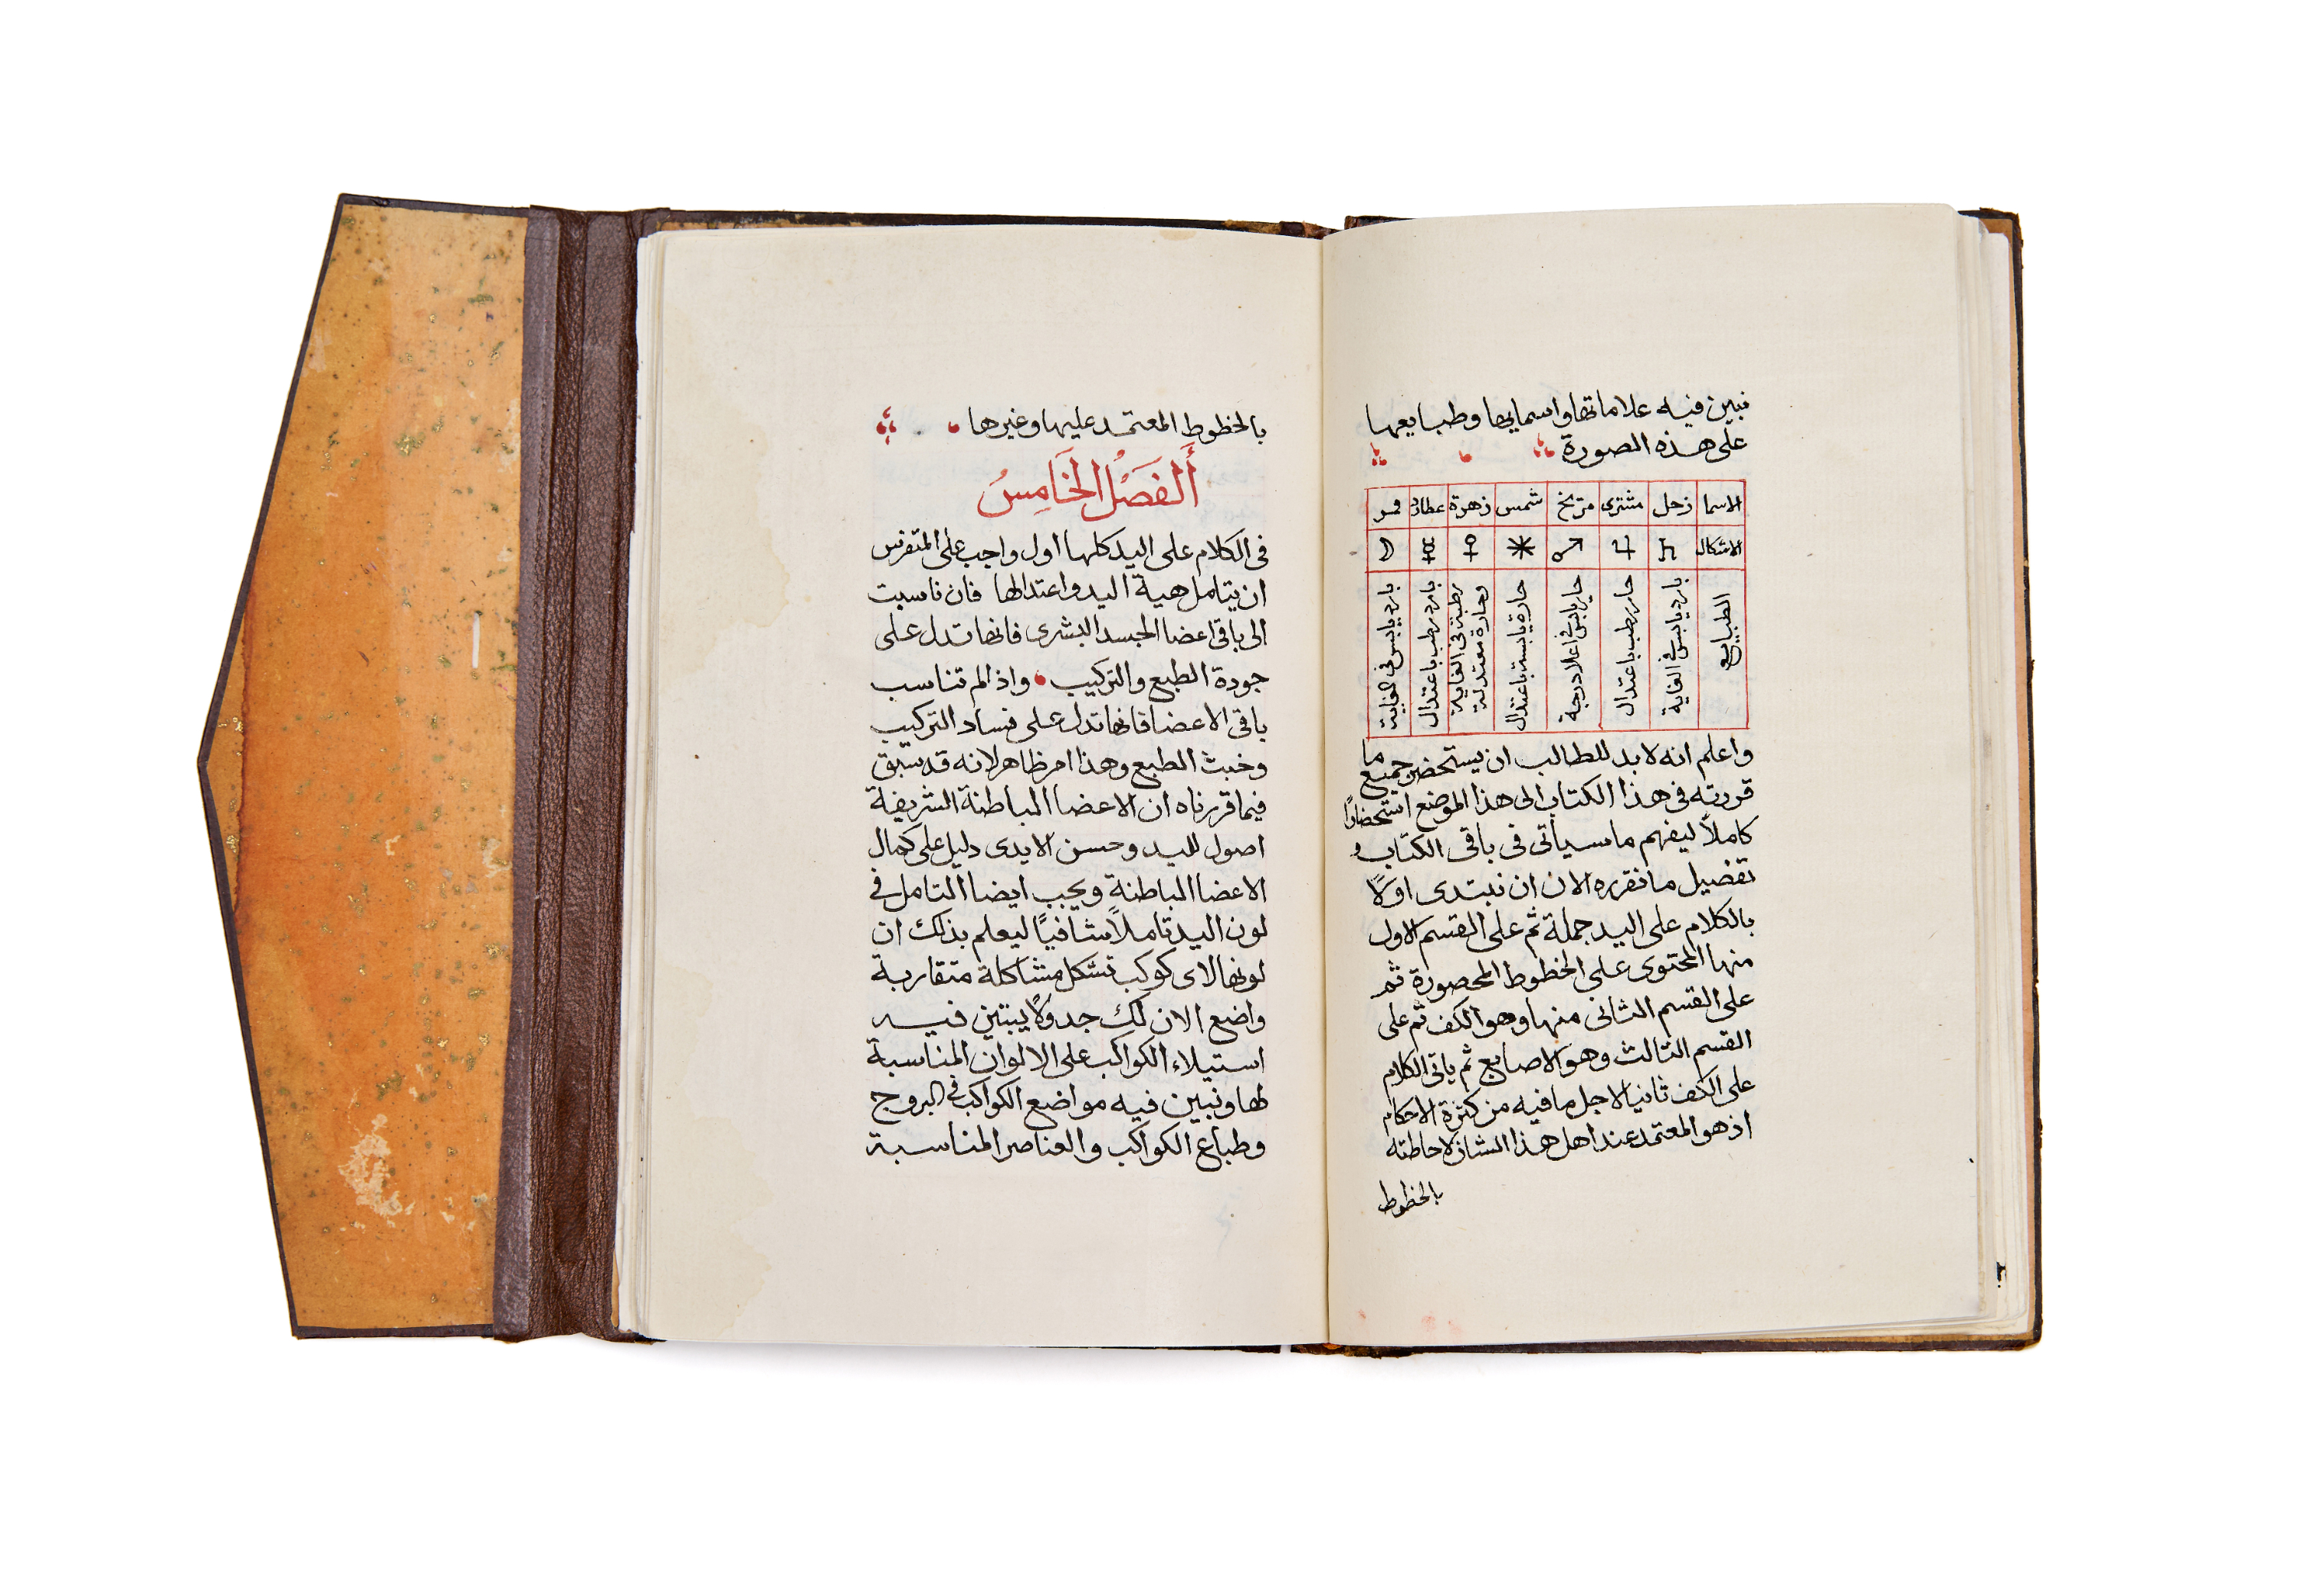 نبين فيه علاماتها واسمايها وطبايعها
على هذه الصورة
الاسما زحل مشترى مريخ شمس زهرة عطارد قمر
الاشكال ♄ ♃ ♂ ✳ ♀ ☿ ☽
الطبايع
بارد يابس فى الغاية
حار رطب باعتدال
حار يابس فى اعلا درجة
حارة يابسة باعتدال
رطبة فى الغاية
وحارة معتدلة
بارد رطب باعتدال
بارد يابس فى الغاية
واعلم انه لابد للطالب ان يستحضر جميع ما
قررته فى هذا الكتاب الى هذا الموضع استحضارًا
كاملاً ليفهم ما سياتى فى باقى الكتاب و
تفضيل ما نقرره الان ان نبتدى اولاً
بالكلام على اليد جملة ثم على القسم الاول
منها المحتوى على الخطوط المحصورة ثم
على القسم الثانى منها وهو الكف ثم على
القسم الثالث وهو الاصابع ثم ياتى الكلام
على الكف ثانيا لاجل ما فيه من كثرة الاحكام
اذ هو المعتمد عند اهل هذا الشان لاحاطته
بالخطوط
بالخطوط المعتمد عليها وغيرها
أَلفَصْلُ الخَامِسُ
فى الكلام على اليد كلها اول واجب على المتفرس
ان يتامل هية اليد واعتدالها فان ناسبت
الى باقى اعضا الجسد البشرى فانها تدل على
جودة الطبع والتركيب واذا لم تناسب
باقى الاعضا فانها تدل على فساد التركيب
وخبث الطبع وهذا امر ظاهر لانه قد سبق
فيما قررناه ان الاعضا الباطنة الشريفة
اصول لليد وحسن الايدى دليل على كمال
الاعضا الباطنة ويجب ايضا التامل فى
لون اليد تاملاً شافيًا ليعلم بذلك ان
لونها لاى كوكب تشكل مشاكلة متقاربة
واضع الان لك جدولاً يبتين فيه
استيلاء الكواكب على الالوان المناسبة
لها ونبين فيه مواضع الكواكب فى البروج
وطباع الكواكب والعناصر المناسبة